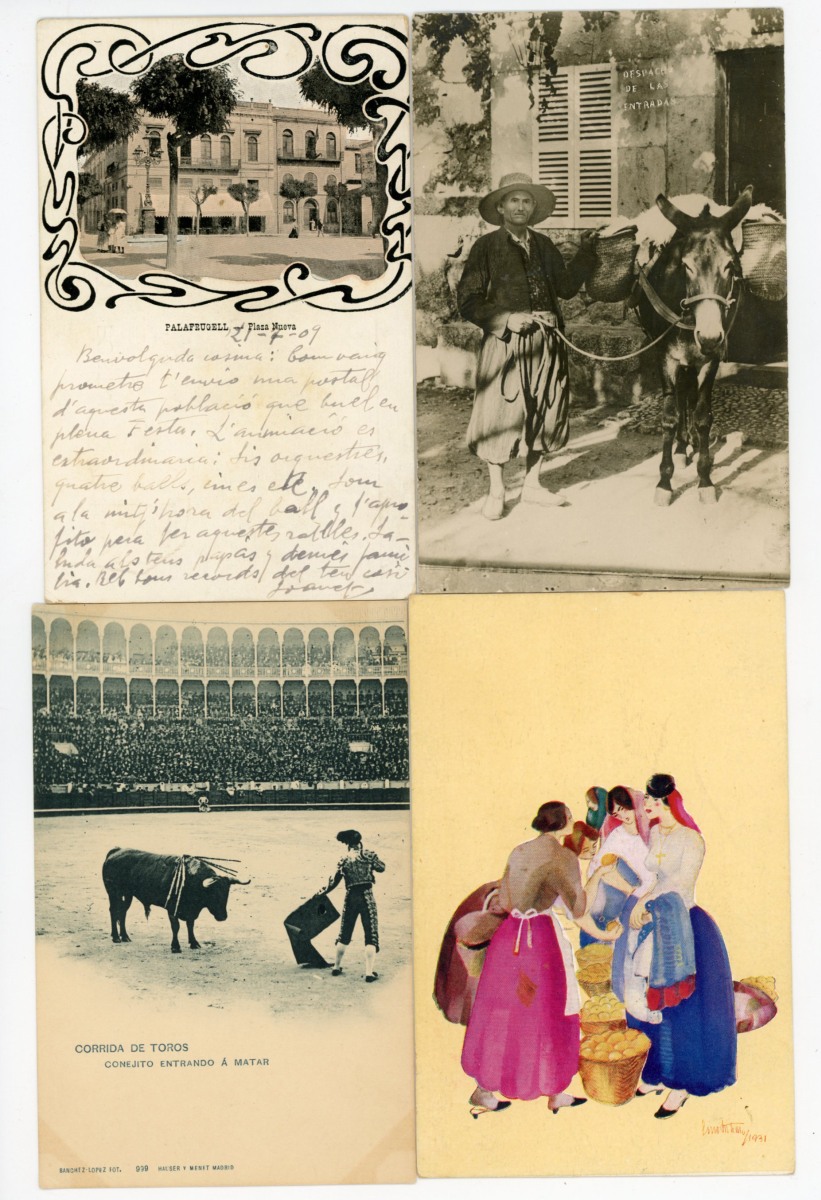 PALAFRUGELL — Plaza Nueva
21-7-09
Benvolguda cosina: Com vaig
prometre t'envio una postal
d'aquesta població que bull en
plena festa. L'animació es
extraordinaria: Sis orquestres,
quatre balls, cines etc. Som
a la mitj'hora del ball y l'apro-
fito para fer aquestes ratlles. Sa-
luda als teus papás y demés fami-
lia. Reb bons records del teu cosí
Joanet
DESPACHO
DE LAS
ENTRADAS
CORRIDA DE TOROS
CONEJITO ENTRANDO Á MATAR
SANCHEZ-LOPEZ FOT. 999 HAUSER Y MENET MADRID
/1931